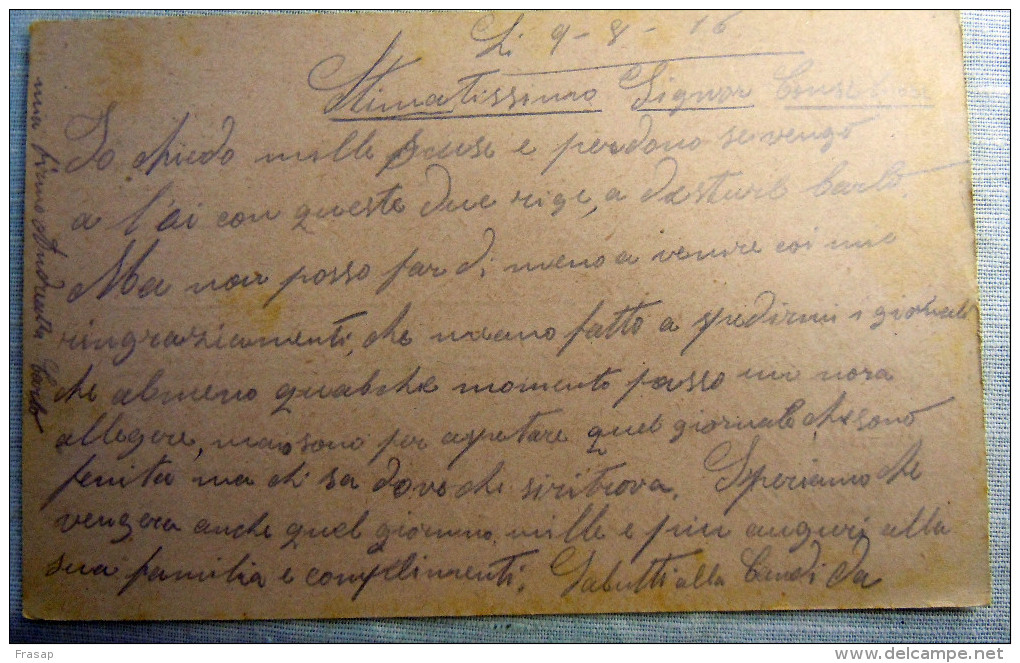 Li 9-8-16
Stimatissimo Signor
Io chiedo mille scuse e perdono se vengo
a l'ai con queste due rige, a desturb
Ma non posso far di meno a venire coi mie
ringraziamenti, che mano fatto a spedirmi i giornale
che almeno qualche momento passo un nora
allegere, ma sono per aspetare quel giornale che sono
fenita ma chi sa dove che si ritrova. Speriamo che
vengera anche quel giorno, mille e piu auguri alla
sua familia e complimenti. Saluttialla Candida
mia firma Andreatta Carlo
Frasap
delcampe.net